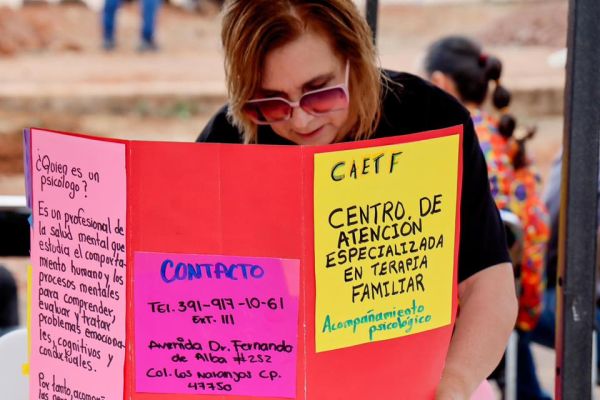 ¿Quien es un
psicólogo?
Es un profesional de
la salud mental que
estudia el comporta-
miento humano y los
procesos mentales
para comprender,
evaluar y tratar
problemas emociona-
les, cognitivos y
conductuales.
Por tanto, acompañ
CONTACTO
Tel. 391-917-10-61
Ext. 111
Avenida Dr. Fernando
de Alba #252
Col. Los Naranjos CP.
47750
CAETF
CENTRO. DE
ATENCIÓN
ESPECIALIZADA
EN TERAPIA
FAMILIAR
Acompañamiento
psicológico